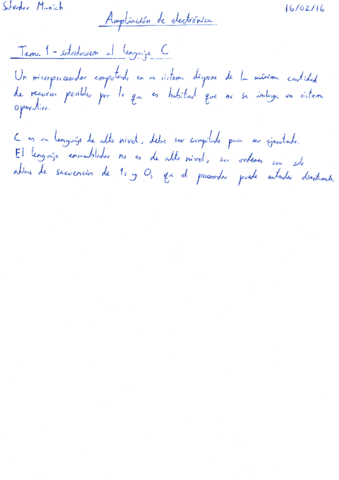 Salvador Munich 16/02/16
Ampliación de electrónica
Tema 1 - introducción al lenguaje C
Un microprocesador empotrado en un sistema dispone de la mínima cantidad
de recursos posibles por lo que es habitual que no se incluya un sistema
operativo.
C es un lenguaje de alto nivel, debe ser compilado para ser ejecutado.
El lenguaje ensamblador no es de alto nivel, sus ordenes son solo
alias de secuencias de 1s y 0s que el procesador puede entender directamente.